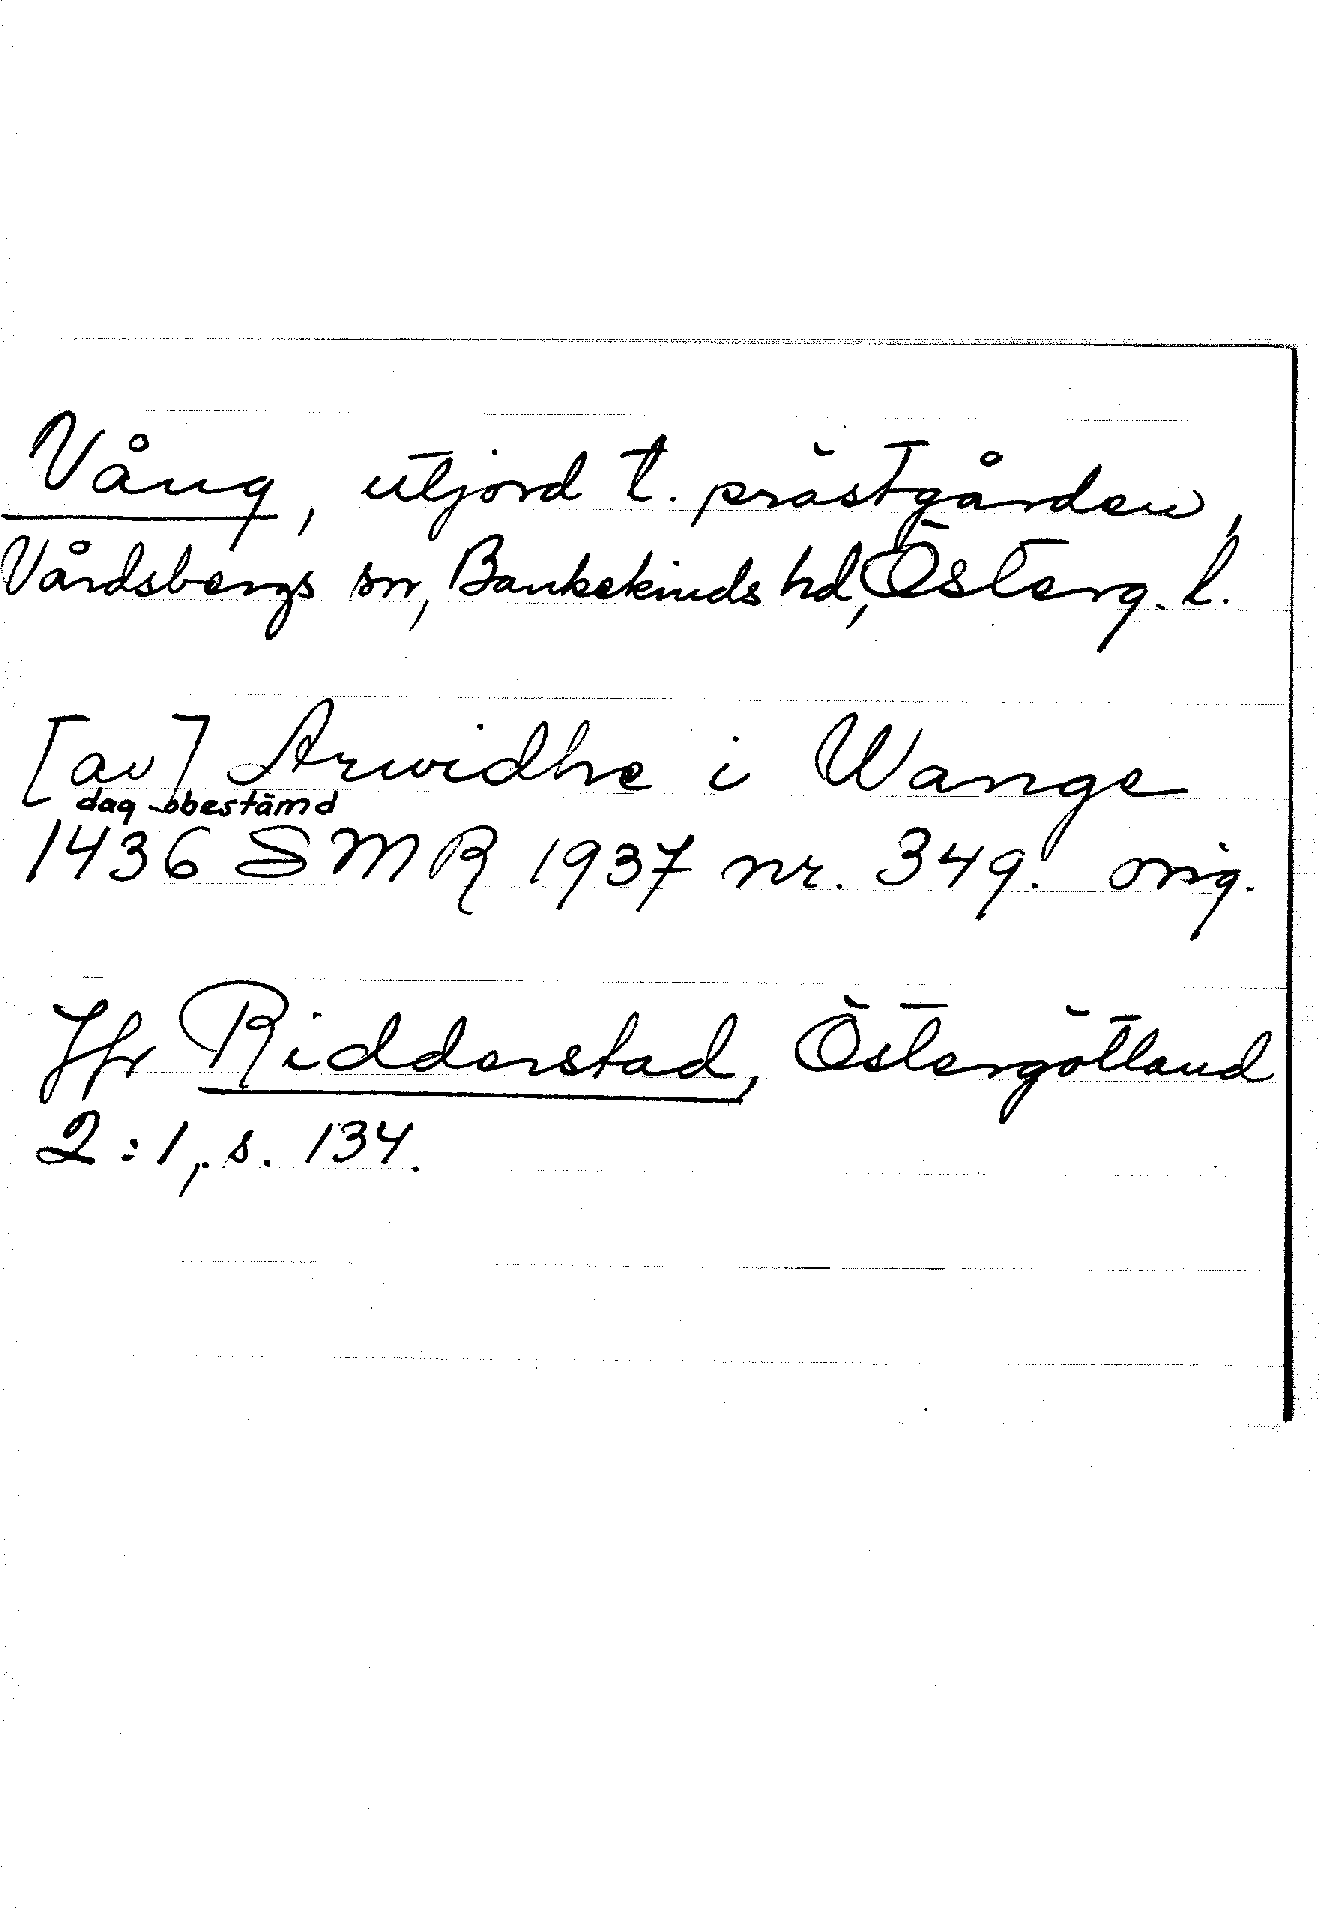 Vång, utjord t. prästgården,
Vårdsbergs sn, Bankekinds hd, Österg. l.
[av] Arwidhe i Wange
dag obestämd
1436 SMR 1937 nr. 349. orig.
Jfr Ridderstad, Östergötland
2:1, s. 134.